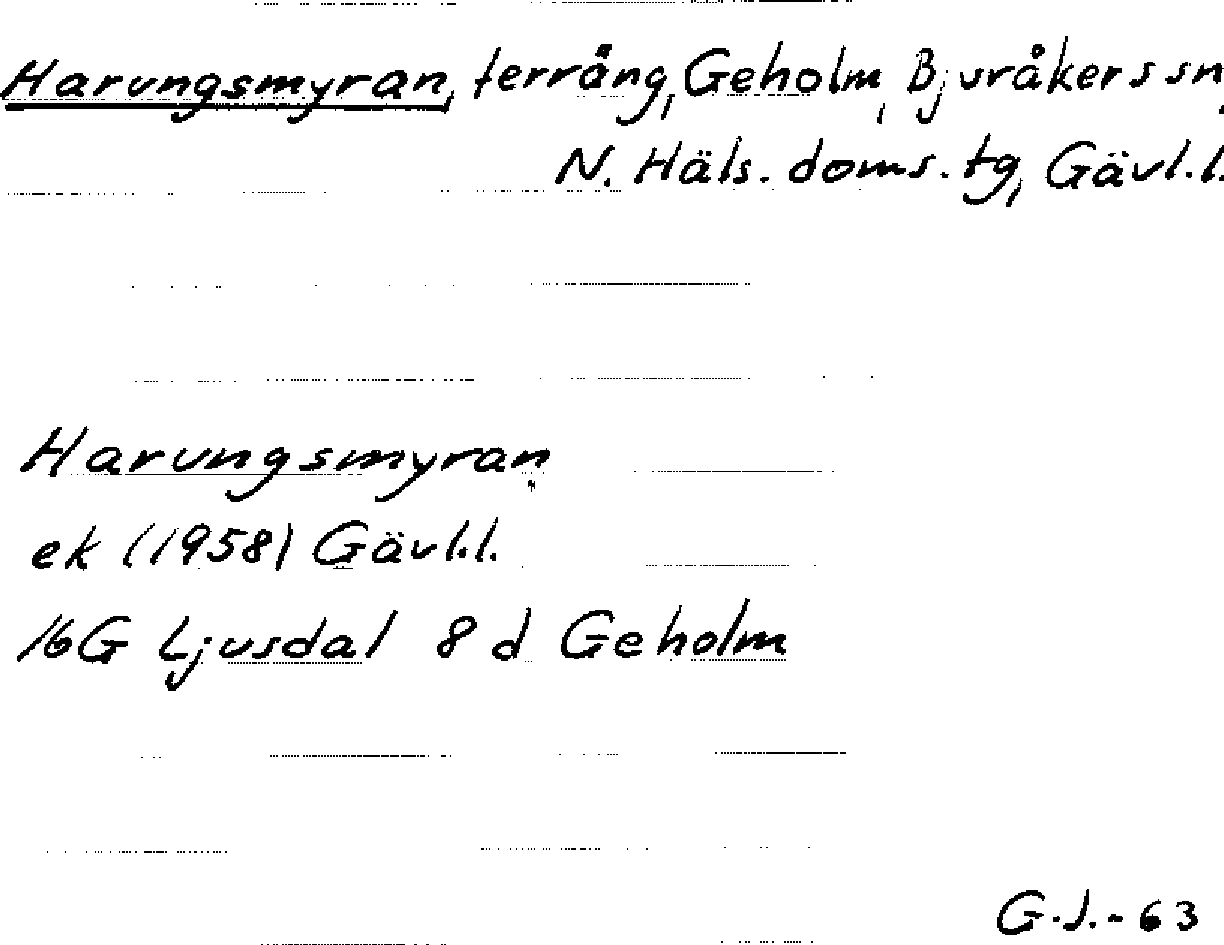 Harungsmyran, terräng, Geholm, Bjuråkers sn,
N. Häls. doms. tg, Gävl.l.
Harungsmyran
ek (1958) Gävl.l.
16G Ljusdal 8 d Geholm
G.J.-63